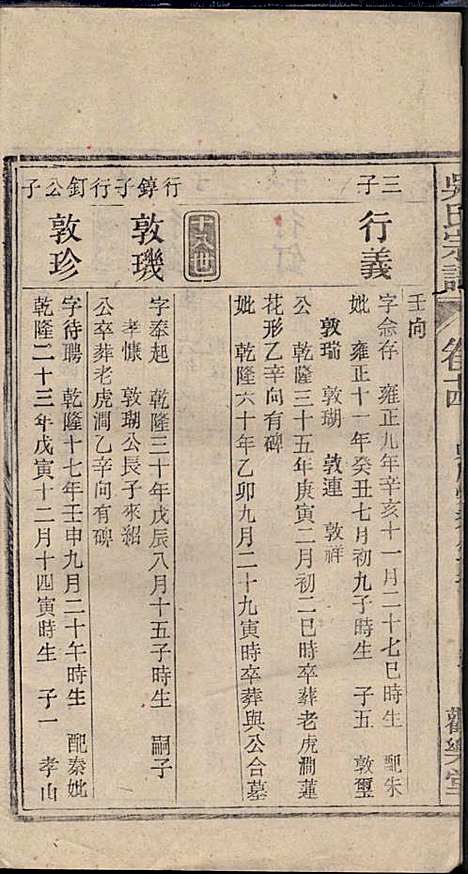 吳氏宗譜
卷十四
觀樂堂
壬向
三子
行義
字念存 雍正九年辛亥十一月二十七巳時生 配朱
妣 雍正十一年癸丑七月初九子時生 子五 敦璽
敦瑞 敦瑚 敦連 敦祥
公 乾隆三十五年庚寅二月初二巳時卒葬老虎澗蓮
花形乙辛向有碑
妣 乾隆六十年乙卯九月二十九寅時卒葬與公合墓
十八世
行錞子
敦璣
字泰起 乾隆三十年戊辰八月十五子時生 嗣子
孝慷 敦瑚公長子來紹
公卒葬老虎澗乙辛向有碑
行釘公子
敦珍
字待聘 乾隆十七年壬申九月二十午時生 配秦妣
乾隆二十三年戊寅十二月十四寅時生 子一 孝山